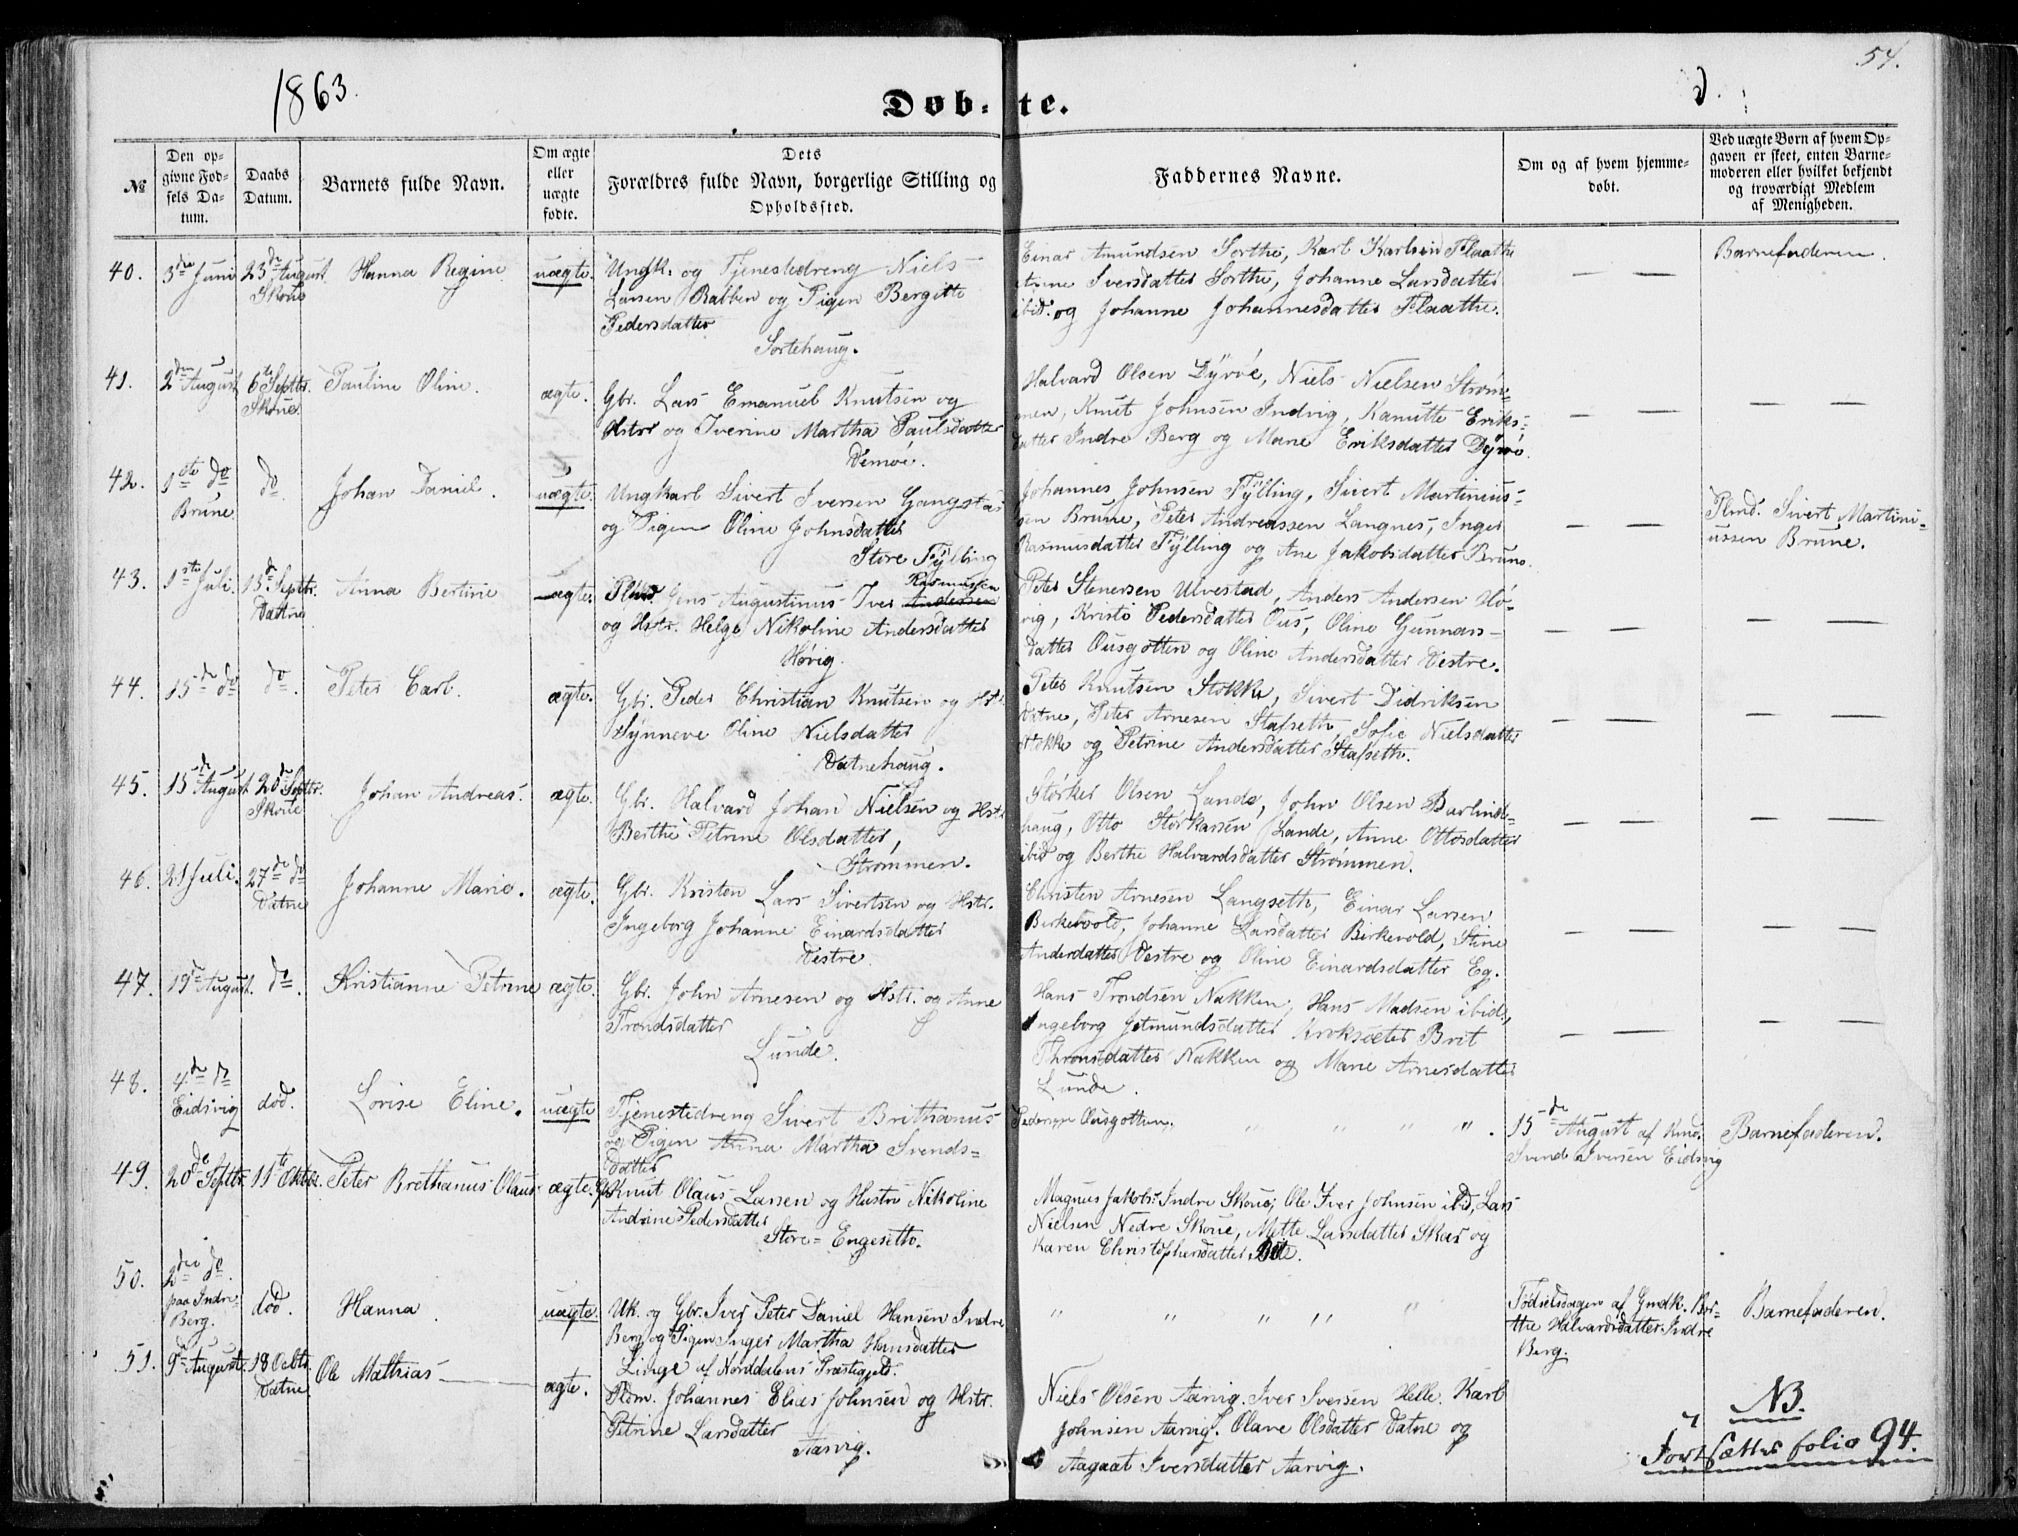 1863.
54.
Døb-te.
№
Den op-
givne Fød-
sels Da-
tum.
Daabs
Datum.
Barnets fulde Navn.
Om ægte
eller
uægte
fødte.
Dets
Forældres fulde Navn, borgerlige Stilling og
Opholdssted.
Faddernes Navne.
Om og af hvem hjemme-
døbt.
Ved uægte Børn af hvem Op-
gaven er skeet, enten Barne-
moderen eller hvilket bekjendt
og troværdigt Medlem
af Menigheden.
40. 3die Juni 23de August Skoue Hanna Regine uægte.
Ungk. og Tjenestedreng Niels
Larsen Rabben og Pigen Bergitte
Pedersdatter
Sortehaug.
Einar Amundsen Sorthe, Karl Karlsen Flaathe
Anne Iversdatter Sorthe, Johanne Larsdatter
ibid. og Johanne Johannesdatter Flaathe.
— —
Barnefaderen.
41. 2den August 6te Septbr. Skoue Pauline Oline. ægte.
Gbr. Lars Emanuel Knutsen og
Hstr og Iverine Martha Paulsdatter
Demoe.
Halvard Olsen Dyrøe, Niels Nielsen Strøm-
men, Knut Johnsen Indvig, Kanutte Eriks-
datter Indre Berg og Mane Eriksdatter Dyrøe.
— — — —
42. 1ste do Brune do. Johan Daniel. uægte.
Ungkarl Sivert Iversen Gangstad
og Pigen Oline Johnsdatter
Store Fylling
Johannes Johnsen Fylling, Sivert Martinius-
sen Brune, Peter Andreassen Langnes, Inger
Rasmusdatter Fylling og Ane Jakobsdatter Brune.
— —
Plmd. Sivert Martini-
ussen Brune.
43. 1ste Juli. 13de Septbr. Datne Anna Bertine ægte.
Plmd. Jens Augustinus Iver Andersen Rasmussen
og Hstr. Helge Nikoline Andersdatter
Høvig.
Peter Stenersen Ulvestad, Anders Andersen Hø-
vig, Kristi Pedersdatter Ous, Oline Gunnars-
datter Ousgotten og Oline Andersdatter Vestre.
— — — —
44. 15de do do. Peter Carl. ægte.
Gbr. Peder Christian Knutsen og Hstr
Synneve Oline Nielsdatter
Datnehaug.
Peter Knutsen Stokke, Sivert Didriksen
Datne, Peter Arnesen Stafseth, Sofie Nielsdatter
Stokke og Petrine Andersdatter Stafseth.
— — — —
45. 15de August 20de Septbr. Skoue Johan Andreas. ægte.
Gbr. Halvard Johan Nielsen og Hstr
Berthe Petrine Olsdatter,
Strømmen.
Størker Olsen Lande, John Olsen Barlind-
haug, Otto Størkersen Lande, Anne Ottosdatter
ibid og Berthe Halvardsdatter Strømmen.
— — — —
46. 21 Juli. 27de do Datne Johanne Marie. ægte.
Gbr. Kristen Lars Sivertsen og Hstr.
Ingeborg Johanne Einardsdatter
Vestre.
Christen Arnesen Langseth, Einar Larsen
Birkevold, Johanne Larsdatter Birkevold, Stine
Andersdatter Vestre og Oline Einardsdatter Eg.
— — — —
47. 19de August. do. Kristianne Petrine ægte.
Gbr. John Arnesen og Hstr. og Anne
Trondsdatter
Lunde.
Hans Trondsen Nakken, Hans Madsen ibid.,
Ingeborg Jetmundsdatter Kroksæter Brit
Thronsdatter Nakken og Mane Arnesdatter
Lunde.
— — — —
48. 4de do Eidsvig død. Lovise Eline. uægte
Tjenestedreng Sivert Brithanus
og Pigen Anna Martha Svends-
datter
Pedersen Ousgotten. " " " " .
15de August af Kmd.
Svend Iversen Eidsvig
Barnefaderen.
49. 20de Septbr. 11te Oktbr. Peter Brethanus Olaus ægte.
Gbr. Knut Olaus Larsen og Hustru Nikoline
Andrine Pedersdatter
Store-Engesette.
Magnus Jakobs. Indre Skoue, Ole Iver Johnsen ibid, Lars
Nielsen Nedre Skoue, Mette Larsdatter Skar og
Karen Christophersdatter
50. 2den do. paa Indre Berg. død. Hanna. uægte.
Uk. og Gbr. Iver Peter Daniel Hansen Indre
Berg og Pigen Inger Martha Hansdatter
Linge af Norddalens Præstegjeld.
" " " " "
Fødselsdagen af Gmdk. Ber-
the Halvardsdatter Indre
Berg.
Barnefaderen.
51. 9de August. 18 Octbr. Datne Ole Mathias ægte.
Pldm. Johannes Elias Johnsen og Hstr.
Petrine Larsdatter
Aarvig.
Niels Olsen Aarvig. Iver Iversen Helle. Karl
Johnsen Aarvig. Olave Olsdatter Datne og
Aagaat Iversdatter Aarvig.
NB.
Fortsættes folio 94.